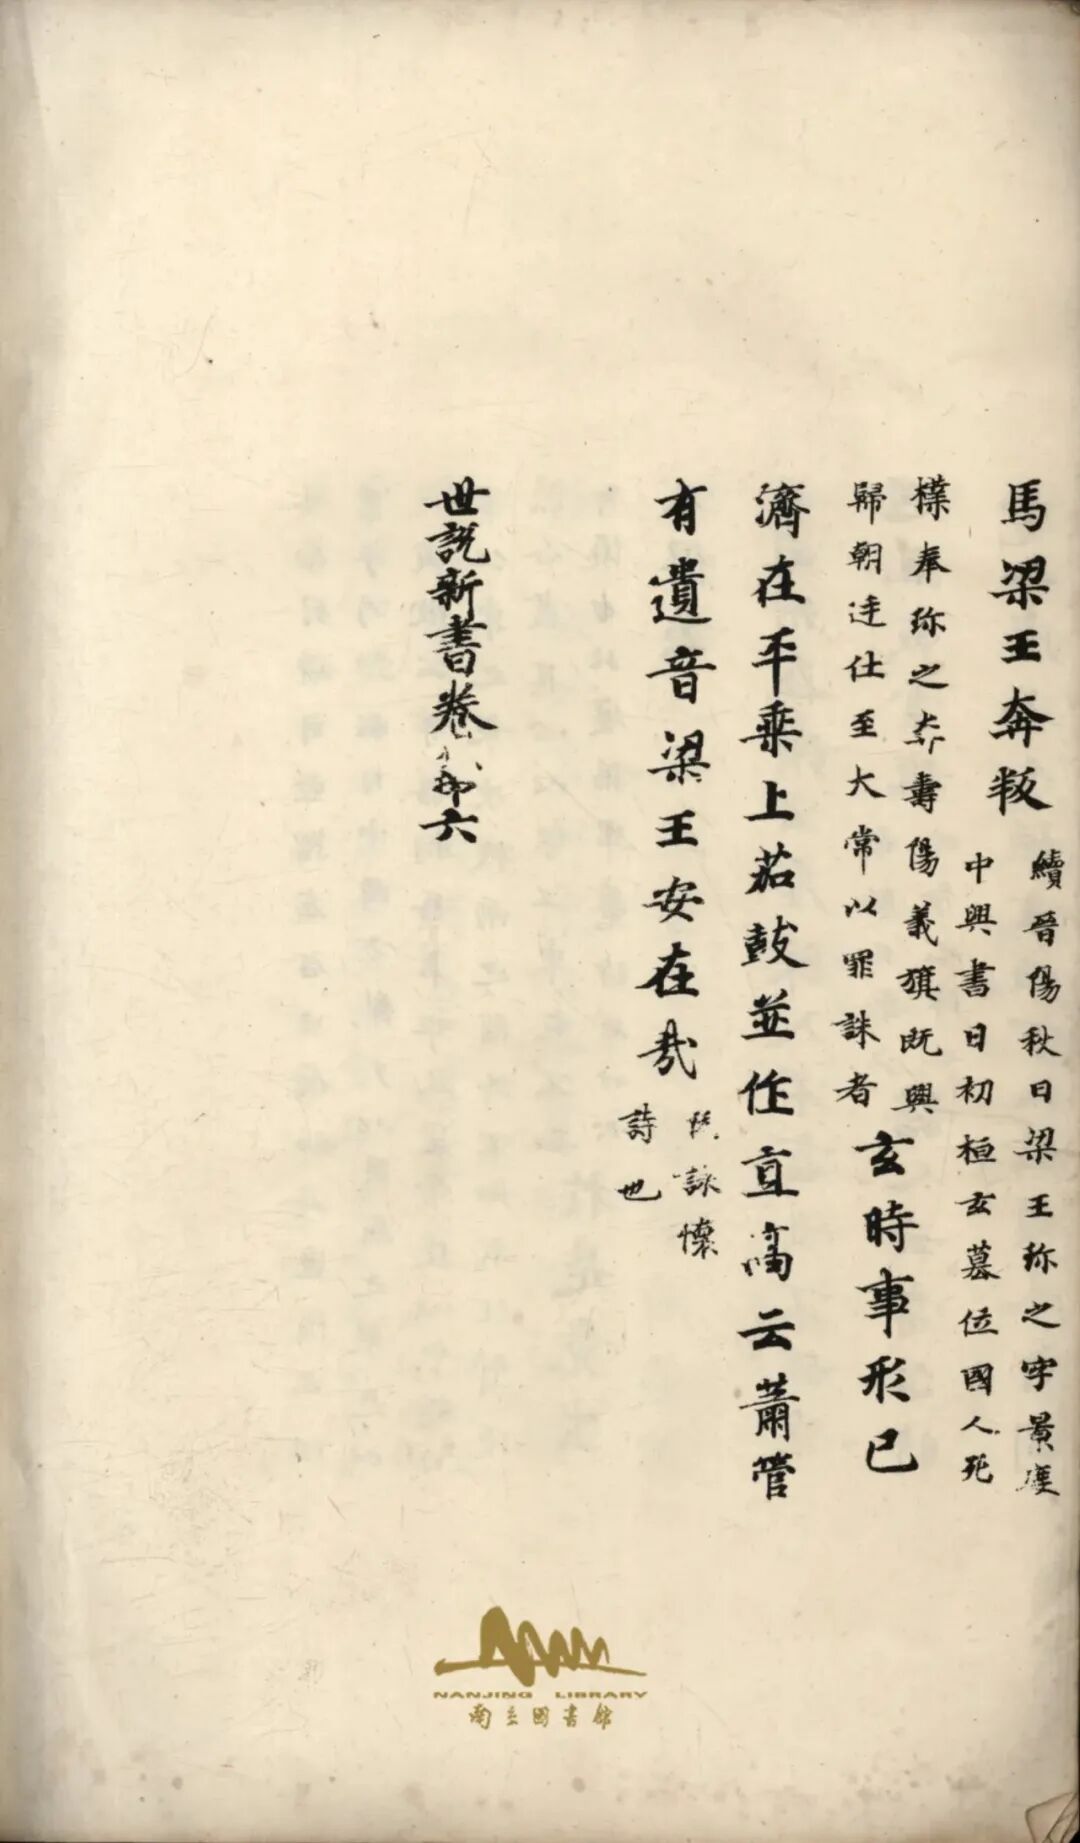 馬梁王奔叛
續晉陽秋日梁王珎之字景度
中興書日初桓玄墓位國人孔
樸奉珎之奔壽陽義旗既興
歸朝廷仕至大常以罪誅者
玄時事形已
濟在平乘上茄鼓並作直高云蕭管
有遺音梁王安在哉
阮詠懷
詩也
世說新書卷第六
NANJING LIBRARY
南京图書館